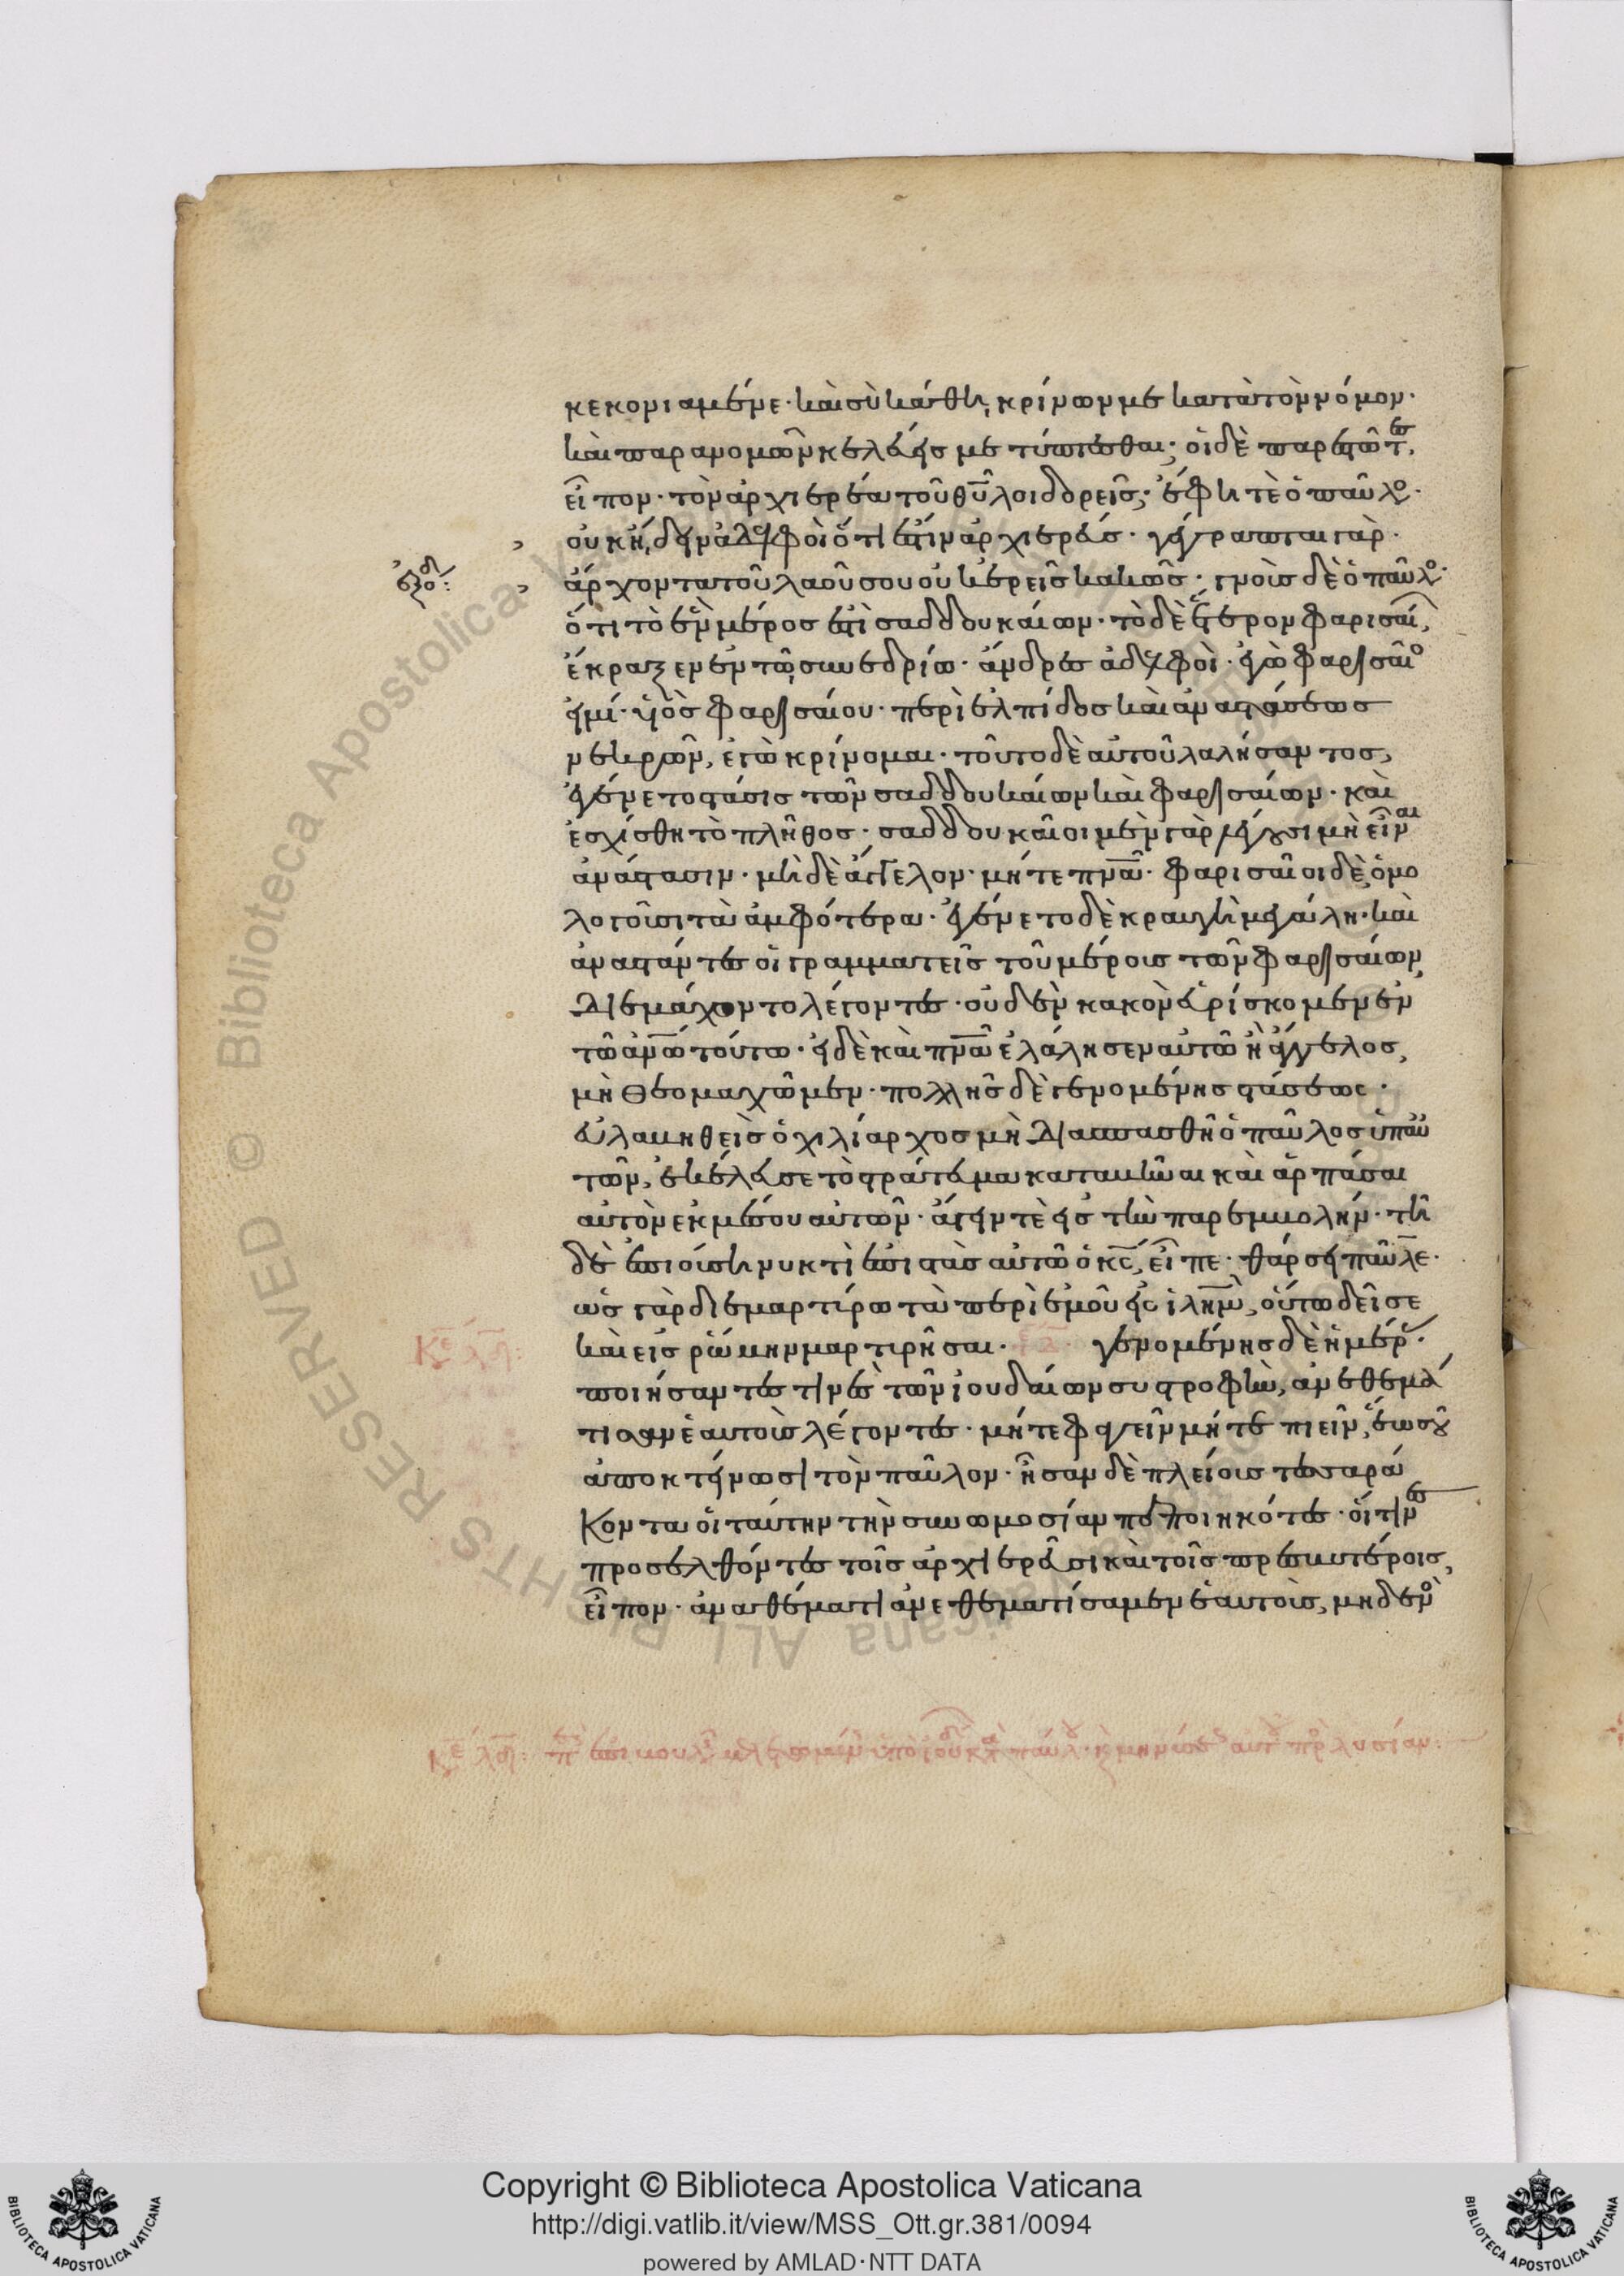 κεκονιαμένε· καὶ σὺ κάθη κρίνων με κατὰ τὸν νόμον·
καὶ παρανομῶν κελεύεις με τύπτεσθαι; οἱ δὲ παρεστῶτες
εἶπον· τὸν ἀρχιερέα τοῦ θῦ λοιδορεῖς; ἔφη τὲ ὁ παῦλος·
οὐκ ἤδειν ἀδελφοὶ ὅτι ἐστὶν ἀρχιερεύς· γέγραπται γὰρ·
ἄρχοντα τοῦ λαοῦ σου οὐκ ἐρεῖς κακῶς· γνοὺς δὲ ὁ παῦλος·
ὅτι τὸ ἓν μέρος ἐστὶ σαδδουκαίων· τὸ δὲ ἕτερον φαρισαί,
ἔκραξεν ἐν τῷ συνεδρίω· ἄνδρες ἀδελφοὶ· ἐγὼ φαρισαῖος
εἰμί· υἱὸς φαρισαίου· περὶ ἐλπίδος καὶ ἀναστάσεως
νεκρῶν, ἐγὼ κρίνομαι· τοῦτο δὲ αὐτοῦ λαλήσαντος,
ἐγένετο στάσις τῶν σαδδουκαίων καὶ φαρισαίων· καὶ
ἐσχίσθη τὸ πλῆθος· σαδδουκαῖοι μὲν γὰρ λέγουσι μὴ εἶναι
ἀνάστασιν· μὴ δὲ ἄγγελον· μήτε πνᾶ· φαρισαῖοι δὲ ὁμο
λογοῦσι τὰ ἀμφότερα· ἐγένετο δὲ κραυγὴ μεγάλη· καὶ
ἀναστάντες οἱ γραμματεῖς τοῦ μέρους τῶν φαρισαίων
διεμάχοντο λέγοντες· οὐδὲν κακὸν εὑρίσκομεν ἐν
τῶ ἀνω τούτω· εἰ δὲ καὶ πνᾶ ἐλάλησεν αὐτῶ ἢ ἄγγελος,
μὴ θεομαχῶμεν· πολλῆς δὲ γενομένης στάσεως·
εὐλαβηθεὶς ὁ χιλίαρχος μὴ διασπασθῆ ὁ παῦλος ὑπ' αὐ
τῶν, ἐκέλευσε τὸ στράτευμα καταβῆναι καὶ ἁρπάσαι
αὐτὸν ἐκ μέσου αὐτῶν· ἄγειν τὲ εἰς τὴν παρεμβολήν· τῆ
δὲ ἐπιούση νυκτὶ ἐπιστὰς αὐτῶ ὁ κς, εἶπε· θάρσει παῦλε·
ὡς γὰρ διεμαρτύρω τὰ περὶ ἐμοῦ εἰς ἱλημ, οὕτω δεῖ σε
καὶ εἰς ῥώμην μαρτυρῆσαι· γενομένης δὲ ἡμέρ·
ποιήσαντες τινὲς τῶν ἰουδαίων συστροφὴν, ἀνεθεμά
τισαν ἑαυτοὺς λέγοντες· μήτε φαγεῖν μήτε πιεῖν, ἕως οὗ
ἀποκτείνωσι τὸν παῦλον· ἦσαν δὲ πλείους τεσσαρά
κοντα οἱ ταύτην τὴν συνωμοσίαν πεποιηκότες· οἵτινες
προσελθόντες τοῖς ἀρχιερεῦσι καὶ τοῖς πρεσβυτέροις,
εἶπον· ἀναθέματι ἀνεθεματίσαμεν ἑαυτοὺς, μηδενὸ
Copyright © Biblioteca Apostolica Vaticana
http://digi.vatlib.it/view/MSS_Ott.gr.381/0094
powered by AMLAD·NTT DATA
BIBLIOTECA APOSTOLICA VATICANA
BIBLIOTECA APOSTOLICA VATICANA